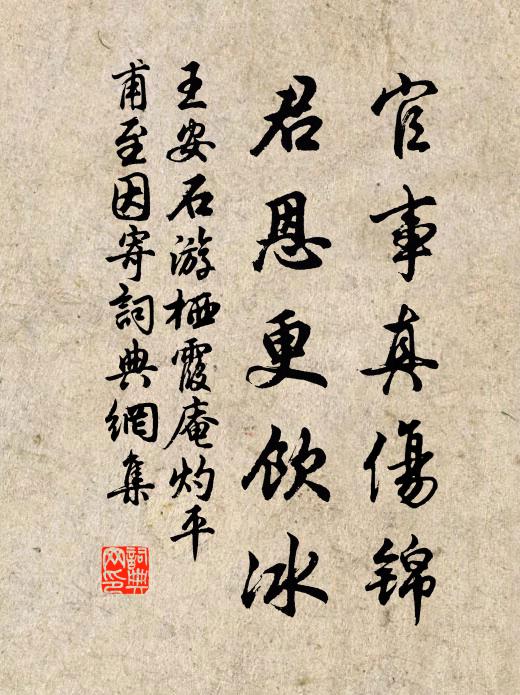 官事真傷錦
君恩更飲冰
王安石游栖霞庵灼平
甫至因寄詞典網集
詞典网印